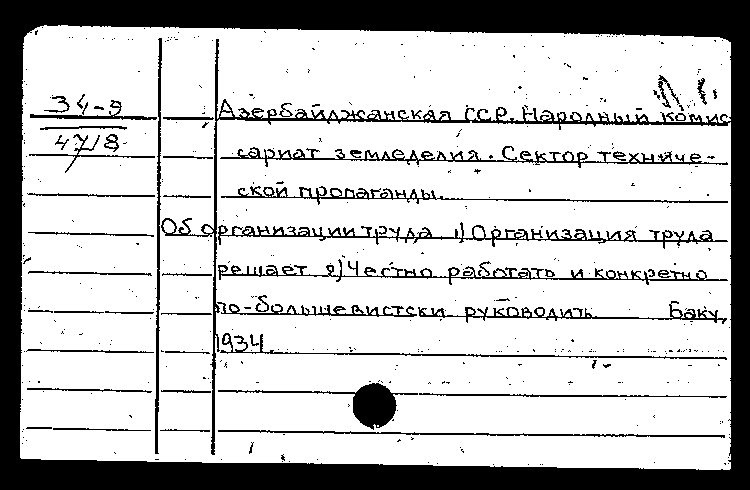 34-9
4718
Азербайджанская ССР. Народный комис-
сариат земледелия. Сектор техниче-
ской пропаганды.
Об организации труда 1) Организация труда
решает 2) Честно работать и конкретно
по-большевистски руководить Баку,
1934